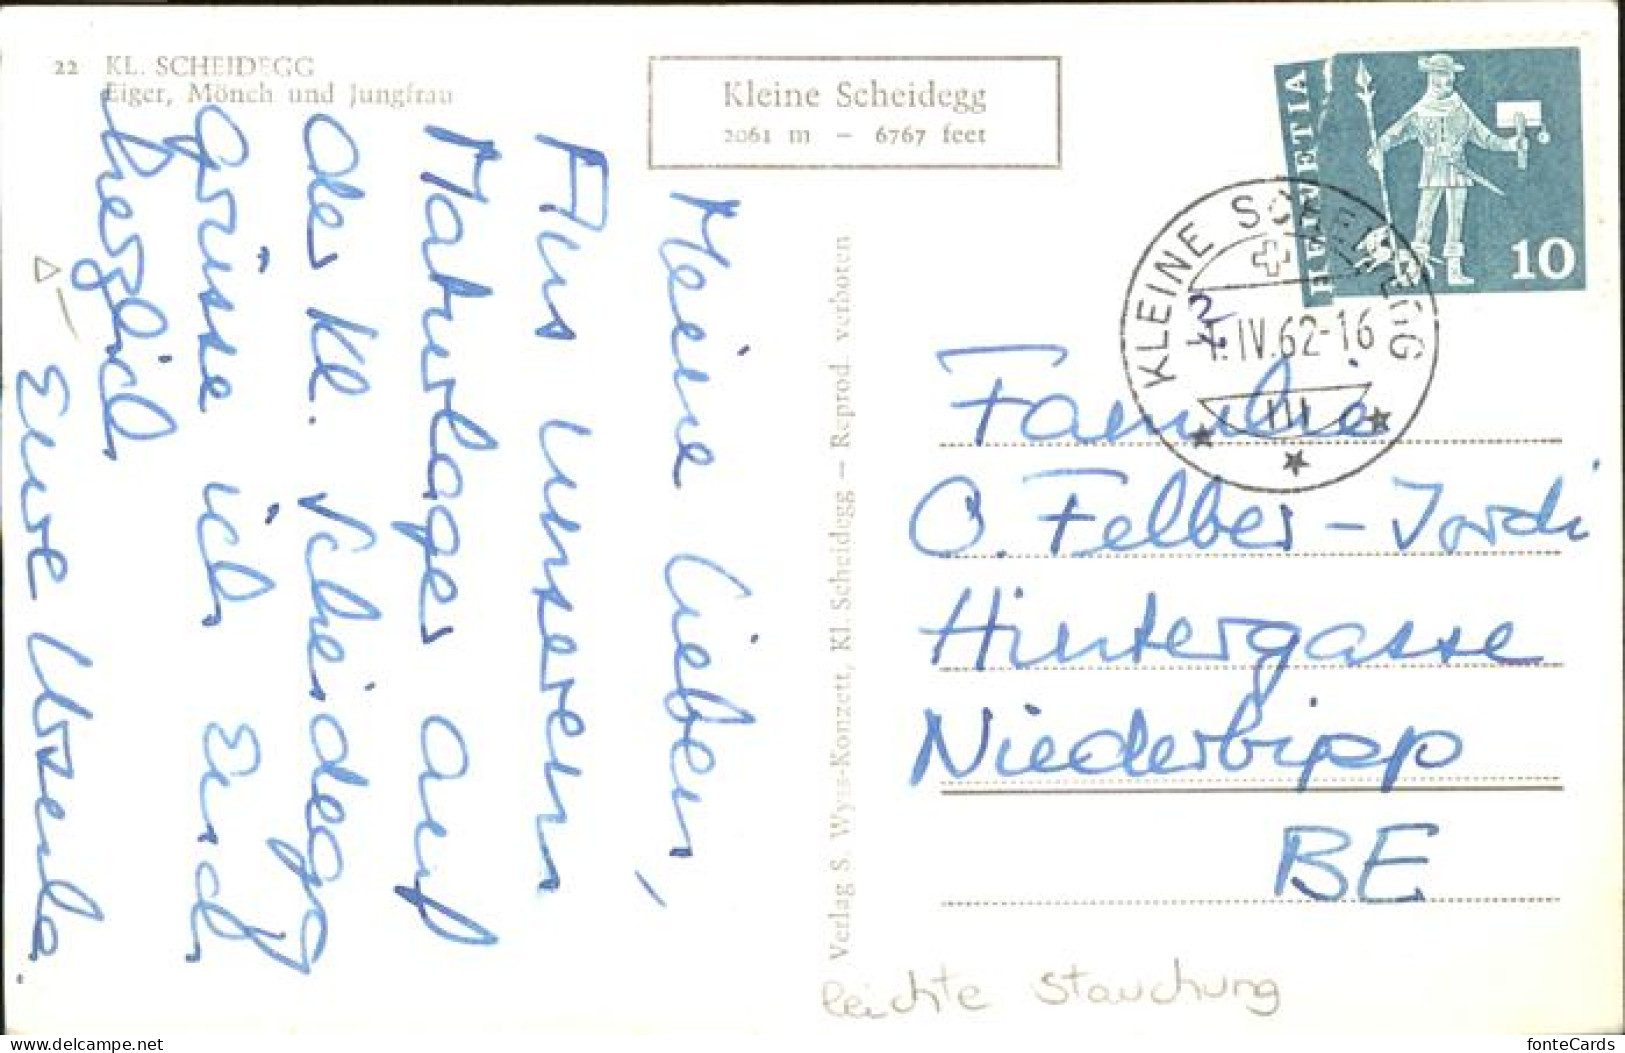 22 KL. SCHEIDEGG
Eiger, Mönch und Jungfrau
Kleine Scheidegg
2061 m – 6767 feet
HELVETIA
10
KLEINE SCHEIDEGG
1.IV.62-16
Meine Lieben,
Aus unserem
Maturlager auf
der Kl. Scheidegg
grüsse ich Euch
herzlich
Eure Ursula.
Verlag S. Wyss-Konzett, Kl. Scheidegg – Reprod. verboten
Familie
O. Felber-Jordi
Hintergasse
Niederbipp
BE
leichte Stauchung
delcampe.net
fonteCards